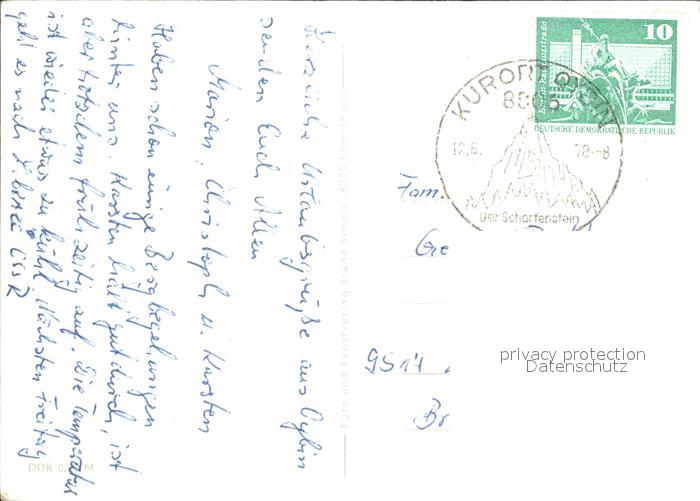 Herzliche Urlaubsgrüße aus Oybin
senden Euch Allen
Marion, Christoph u. Karsten
Haben schon einige Bergbegehungen
hinter uns. Karsten hält gut durch, ist
aber trotzdem frühzeitig auf. Die Temperatur
ist wieder etwas zu kühl. Nächsten Freitag
geht es nach
DDR 0, M
Foto und Kunstverlag Bruno Scholz, 8705
10
DEUTSCHE DEMOKRATISCHE REPUBLIK
KURORT OYBIN
12.8. 78--8
Der Scharfenstein
Fam.
Gre
9514
Br
privacy protection
Datenschutz